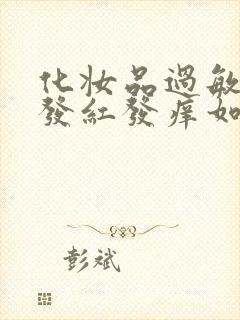 化妝品過敏
發紅發癢如
彭斌